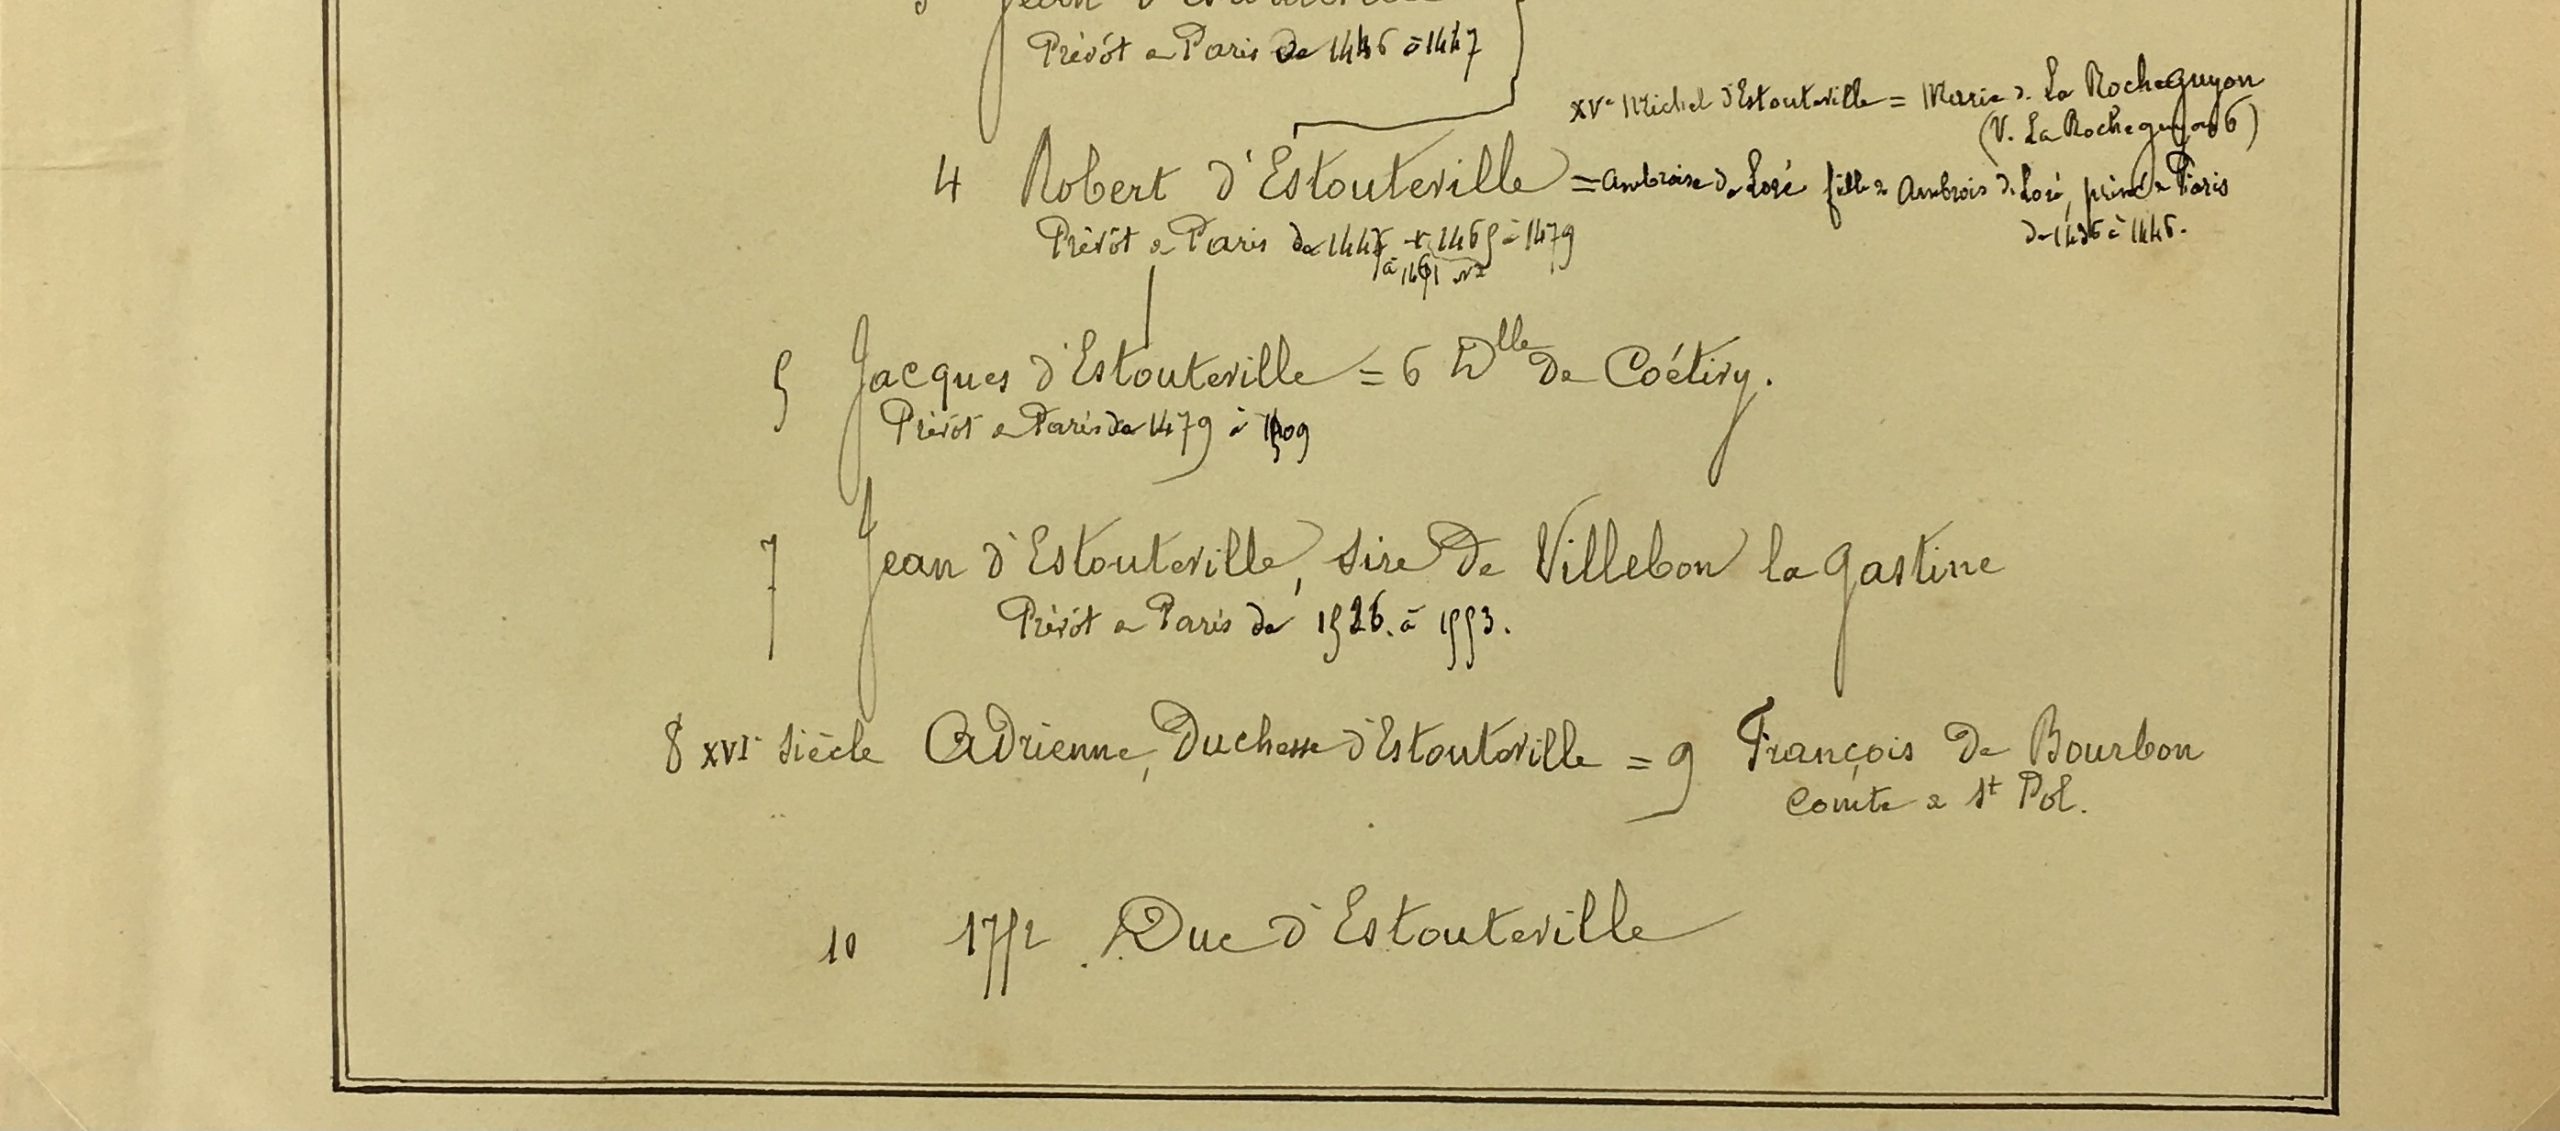 3 Jean d'Estouteville
Prévôt de Paris de 1446 à 1447
XVe Michel d'Estouteville = Marie de La Rocheguyon
(V. La Rocheguyon 6)
4 Robert d'Estouteville = Ambroise de Loré fille de Ambrois de Loré, de Paris
de 1436 à 1446.
Prévôt de Paris de 1447 + 1465 à 1479
à 1461
5 Jacques d'Estouteville = 6 Dlle de Coétivy.
Prévôt de Paris de 1479 à 1509
7 Jean d'Estouteville, Sire de Villebon la Gastine
Prévôt de Paris de 1526. à 1553.
8 XVIe Siècle Adrienne, Duchesse d'Estouteville = 9 François de Bourbon
Comte de St Pol.
10 1752 Duc d'Estouteville